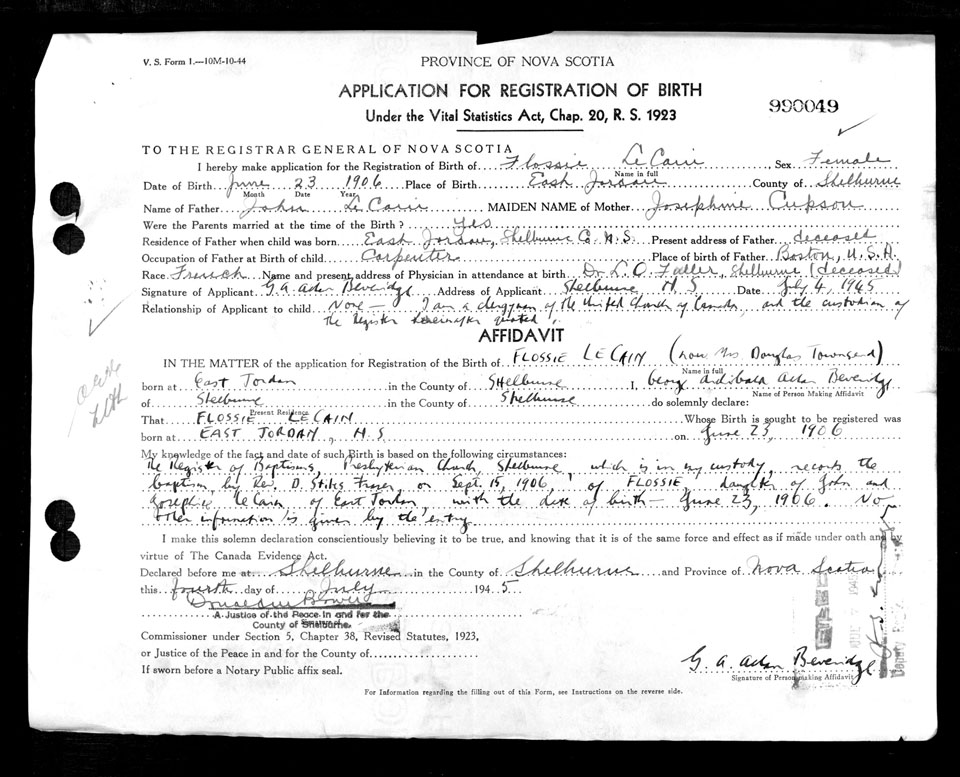 V. S. Form 1.—10M-10-44
PROVINCE OF NOVA SCOTIA
APPLICATION FOR REGISTRATION OF BIRTH
Under the Vital Statistics Act, Chap. 20, R. S. 1923
990049
TO THE REGISTRAR GENERAL OF NOVA SCOTIA
I hereby make application for the Registration of Birth of Flossie Le Cain Sex Female
Name in full
Date of Birth June 23 1906 Place of Birth East Jordan County of Shelburne
Month Date Year
Name of Father John Le Cain MAIDEN NAME of Mother Josephine Cupson
Were the Parents married at the time of the Birth? Yes
Residence of Father when child was born East Jordan, Shelburne Co. N.S. Present address of Father deceased
Occupation of Father at Birth of child Carpenter Place of birth of Father Boston, U.S.A.
Race French Name and present address of Physician in attendance at birth Dr. L. O. Fuller, Shelburne (deceased)
Signature of Applicant G. A. Allan Beveridge Address of Applicant Shelburne N S Date July 4, 1945
Relationship of Applicant to child None — I am a clergyman of the United Church of Canada, and the custodian of
the Register hereinafter quoted.
AFFIDAVIT
IN THE MATTER of the application for Registration of the Birth of FLOSSIE LE CAIN (now Mrs Douglas Townsend)
Name in full
born at East Jordan in the County of Shelburne I, George Archibald Allan Beveridge
Name of Person Making Affidavit
of Shelburne in the County of Shelburne do solemnly declare:
Present Residence
That FLOSSIE LE CAIN Whose Birth is sought to be registered was
born at EAST JORDAN, N.S on June 23, 1906
My knowledge of the fact and date of such Birth is based on the following circumstances:
The Register of Baptisms, Presbyterian Church, Shelburne, which is in my custody, records the
baptism by Rev. D. Stiles Fraser, on Sept. 15, 1906, of FLOSSIE, daughter of John and
Josephine Le Cain, of East Jordan, with the date of birth — June 23, 1906. No
other information is given by the entry.
I make this solemn declaration conscientiously believing it to be true, and knowing that it is of the same force and effect as if made under oath and by
virtue of The Canada Evidence Act.
Declared before me at Shelburne in the County of Shelburne and Province of Nova Scotia
this fourth day of July 1945
A Justice of the Peace in and for the
County of Shelburne.
Commissioner under Section 5, Chapter 38, Revised Statutes, 1923,
or Justice of the Peace in and for the County of
If sworn before a Notary Public affix seal.
G. A. Allan Beveridge
Signature of Person making Affidavit
For Information regarding the filling out of this Form, see Instructions on the reverse side.